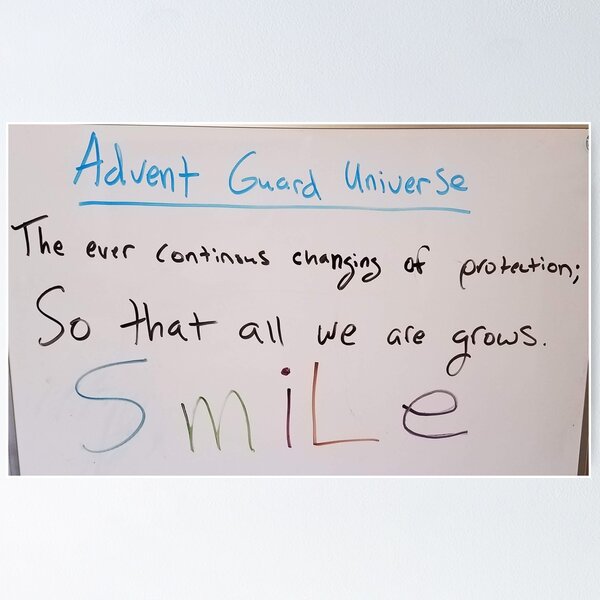 Advent Guard Universe
The ever continous changing of protection;
So that all we are grows.
SmiLe